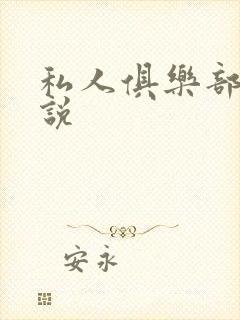 私人俱樂部
說
安永